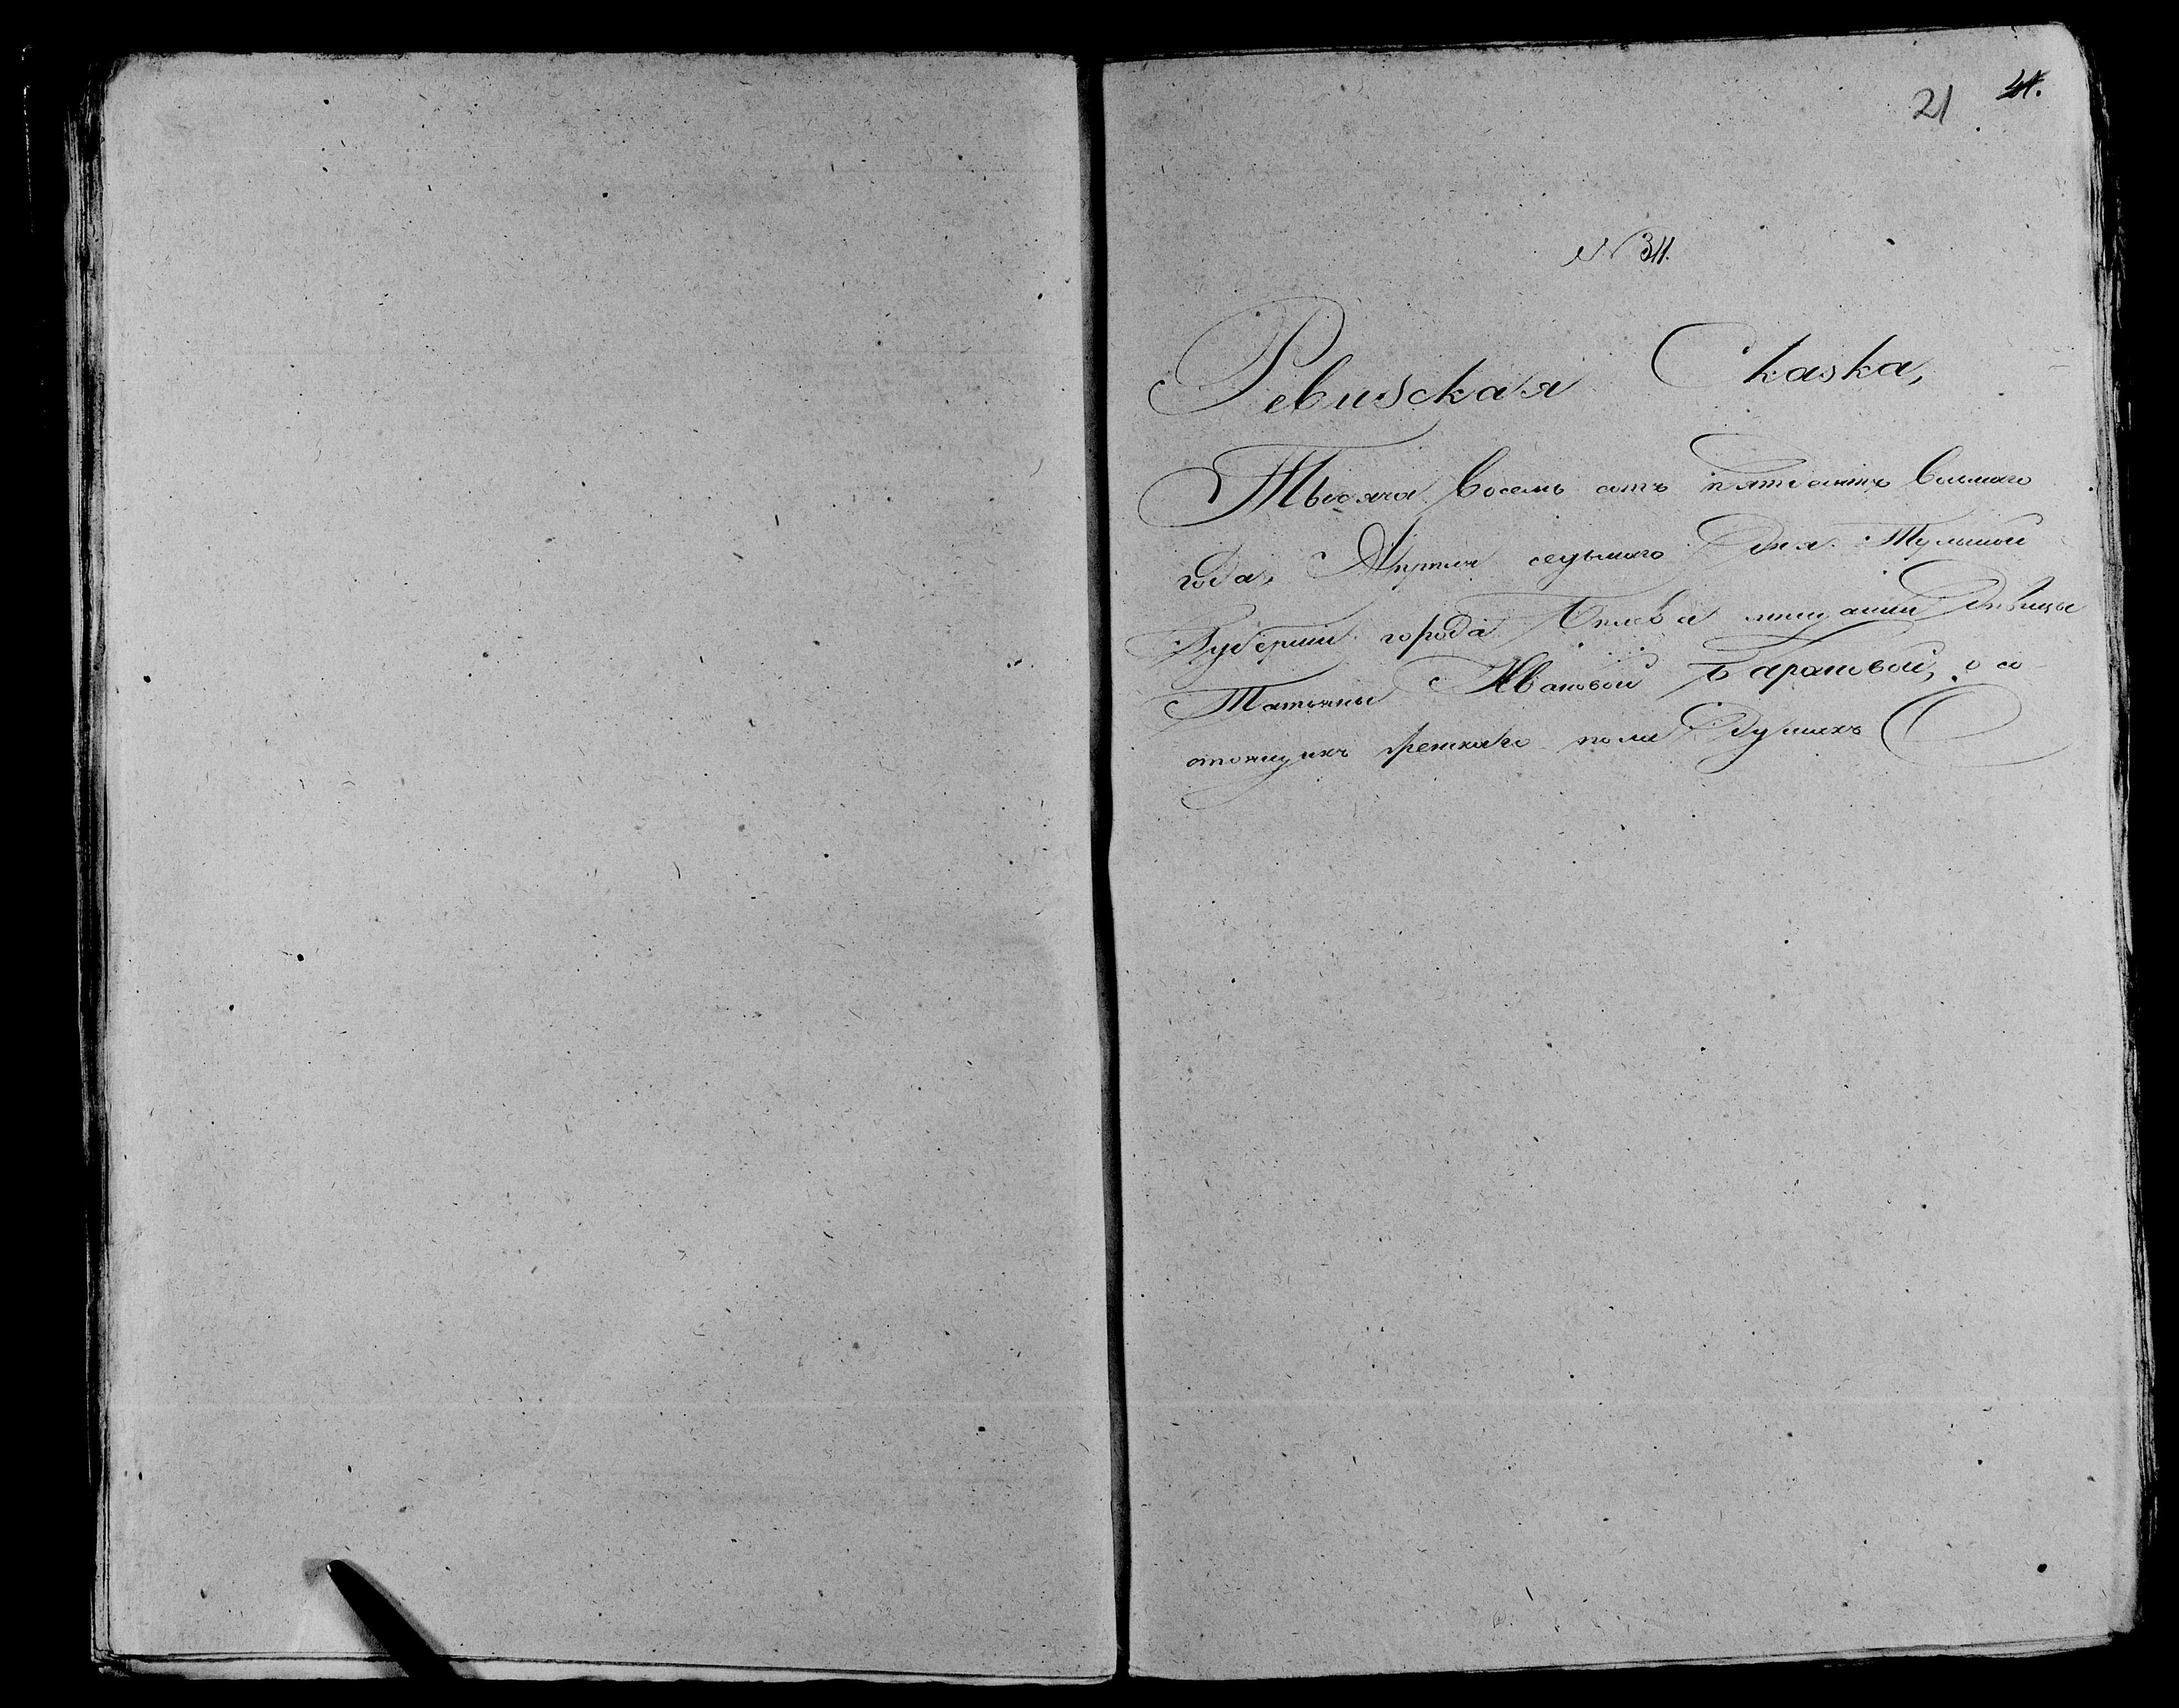 21
№ 311.
Ревизская Сказка,
Тысяча восемь сотъ пятьдесятъ восьмаго
года, Апреля седьмаго дня. Тульской
Губерніи города Белева мещанки Девицы
Татьяны Ивановой Барановой, о со-
стоящихъ женскаго пола душахъ